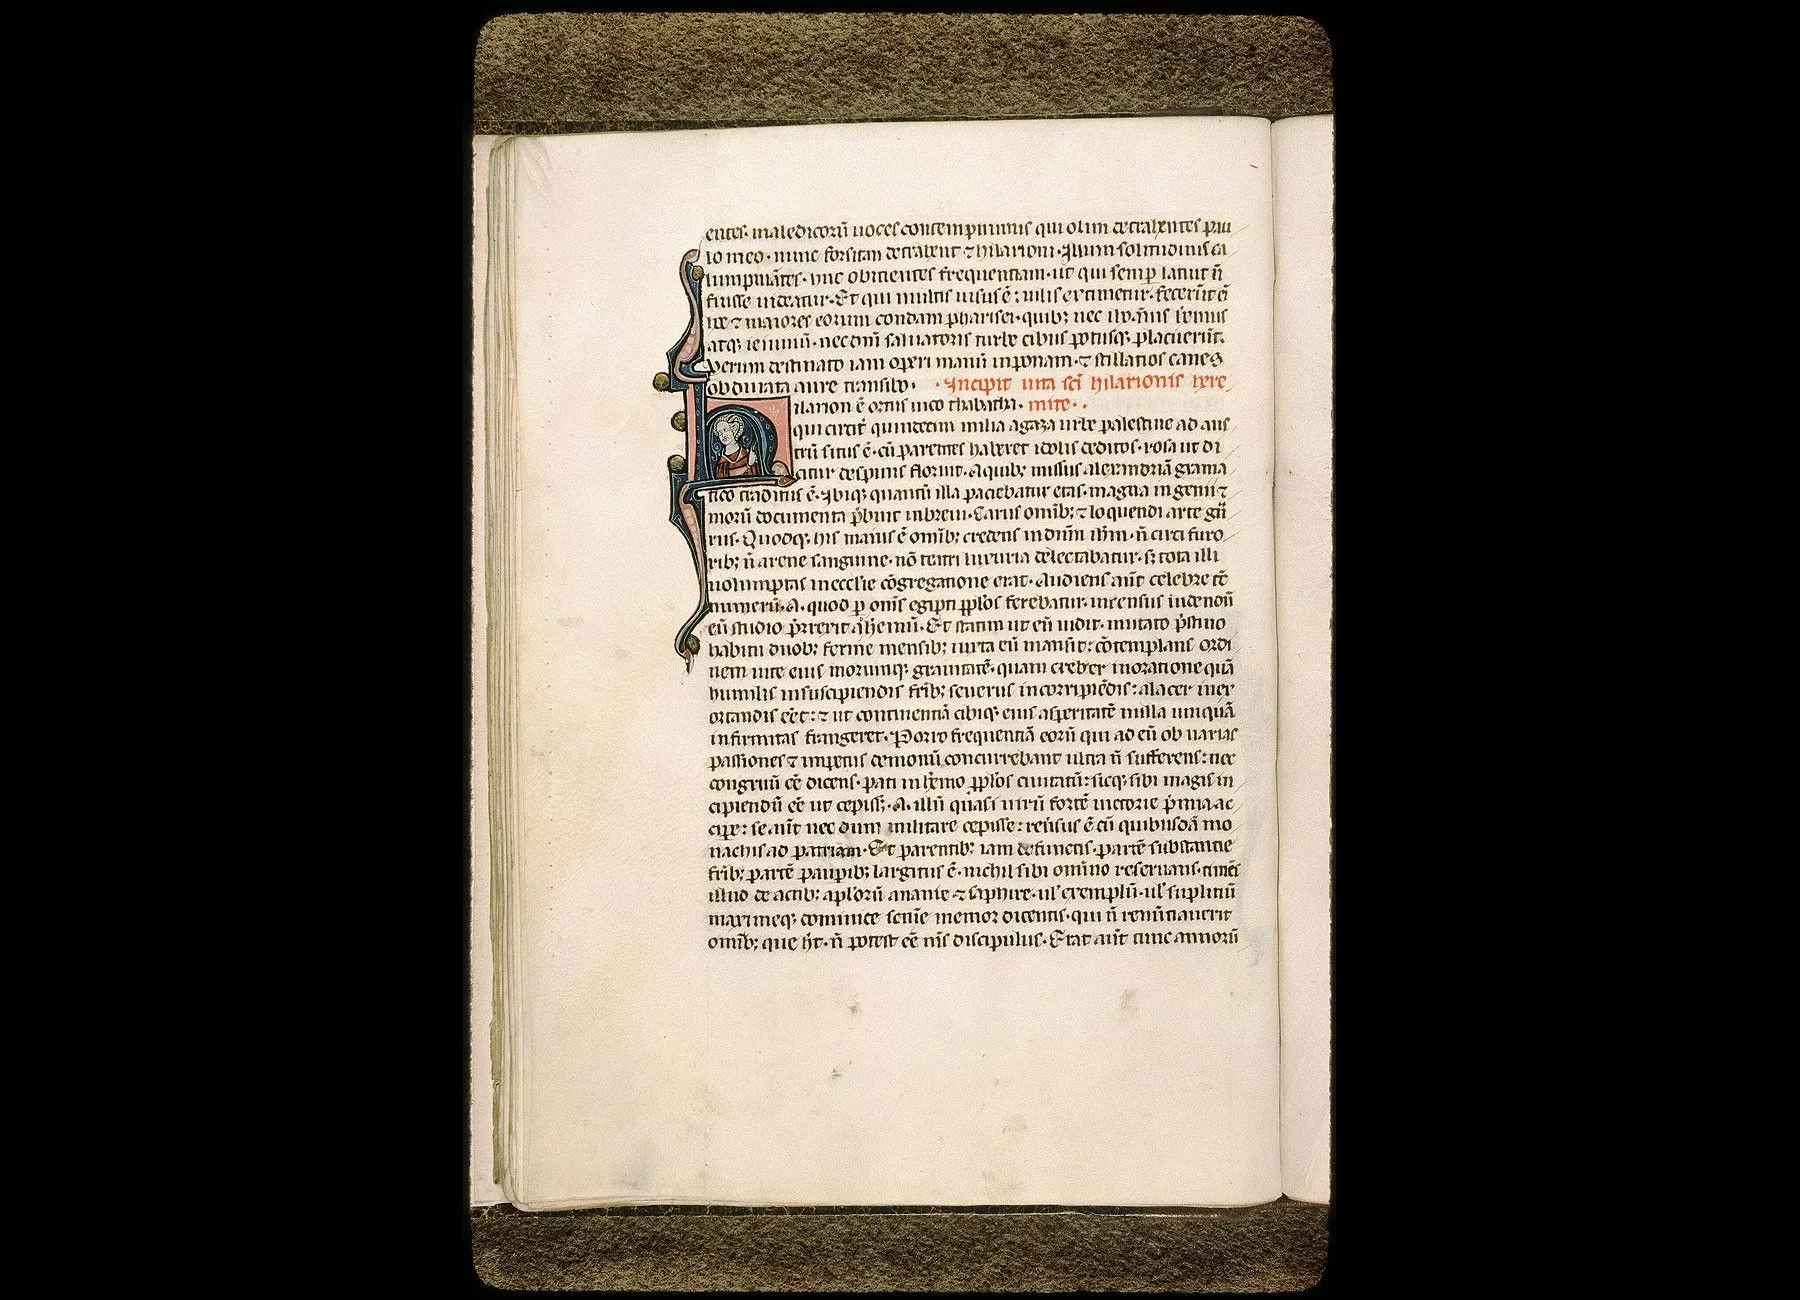 entes. maledicorū uoces contempnimus qui olim detrahentes pau
lo meo. nunc forsitan detrahent ⁊ hilarioni. Illum solitudinis ca
lumpniātes. huic obicientes frequentiam. ut qui semp latuit ñ
fuisse uideatur. Et qui multis uisus ē: uilis extimetur. fecerūt
⁊ maiores eorum condam pharisei. quib; nec ieiuniū
atq; ieiuniū. nec dñi saluatoris turbe cibus potusq; placuerūt.
Verum destinato iam operi manū inponam. ⁊ scillatios canes
obdurata aure transibo. Incipit uita sci hilarionis here
ilarion ē ortus uico thabatha. mite..
qui circit̄ quindecim milia a gaza urbe palestine ad aus
trū situs ē. cū parentes haberet idolis deditos. rosa ut di
citur de spinis floruit. A quib; missus alexandriā grama
tico traditus ē. Ibiq; quantū illa paciebatur etas. magna ingenii ⁊
morū documenta p̄buit in breui. Carus omib; ⁊ loquendi arte gñ
rus. Quodq; his maius ē omib; credens in dñm ihm. ñ circi furo
rib; ñ arene sanguine. nō teatri luxuria delectabatur. s; tota illi
uolumptas in ecclie cōgregatione erat. Audiens aūt celebre tē
numerū. A. quod p onis egipti pplos ferebatur. incensus uidendū
eū studio p̄rrexit ad hemū. Et statim ut eū uidit. mutato p̄stino
habitu duob; ferme mensib; iuxta eū mansit: cōtemplans ordi
nem uite eius morumq; grauitatē. quam creber in oratione quā
humilis in suscipiendis frib; seuerus in corripiēdis: alacer in ex
ortandis eēt: ⁊ ut continentiā cibiq; eius asperitatē nulla unquā
infirmitas frangeret. Porro frequentiā eorū qui ad eū ob uarias
passiones ⁊ impetus demonū concurrebant ultra ñ sufferens: nec
congruū eē dicens. pati in hemo pplos ciuitatū: sicq; sibi magis in
cipiendū eē ut cepiss;. A. illū quasi uirū fortē uictorie p̄mia ac
cipe: se aūt nec dum militare cepisse: reūsus ē cū quibusdā mo
nachis ad patriam. Et parentib; iam defunctis. partē substantie
frib; partē paupib; largitus ē. nichil sibi omino reseruans. timēs
illud de actib; aplorū ananie ⁊ saphire. ul' exemplū. ul' suplitiū
maximeq; dominice sentie memor dicentis. qui ñ renūtiauerit
omib; que ht. ñ potest eē mis discipulus. Erat aūt tunc annorū